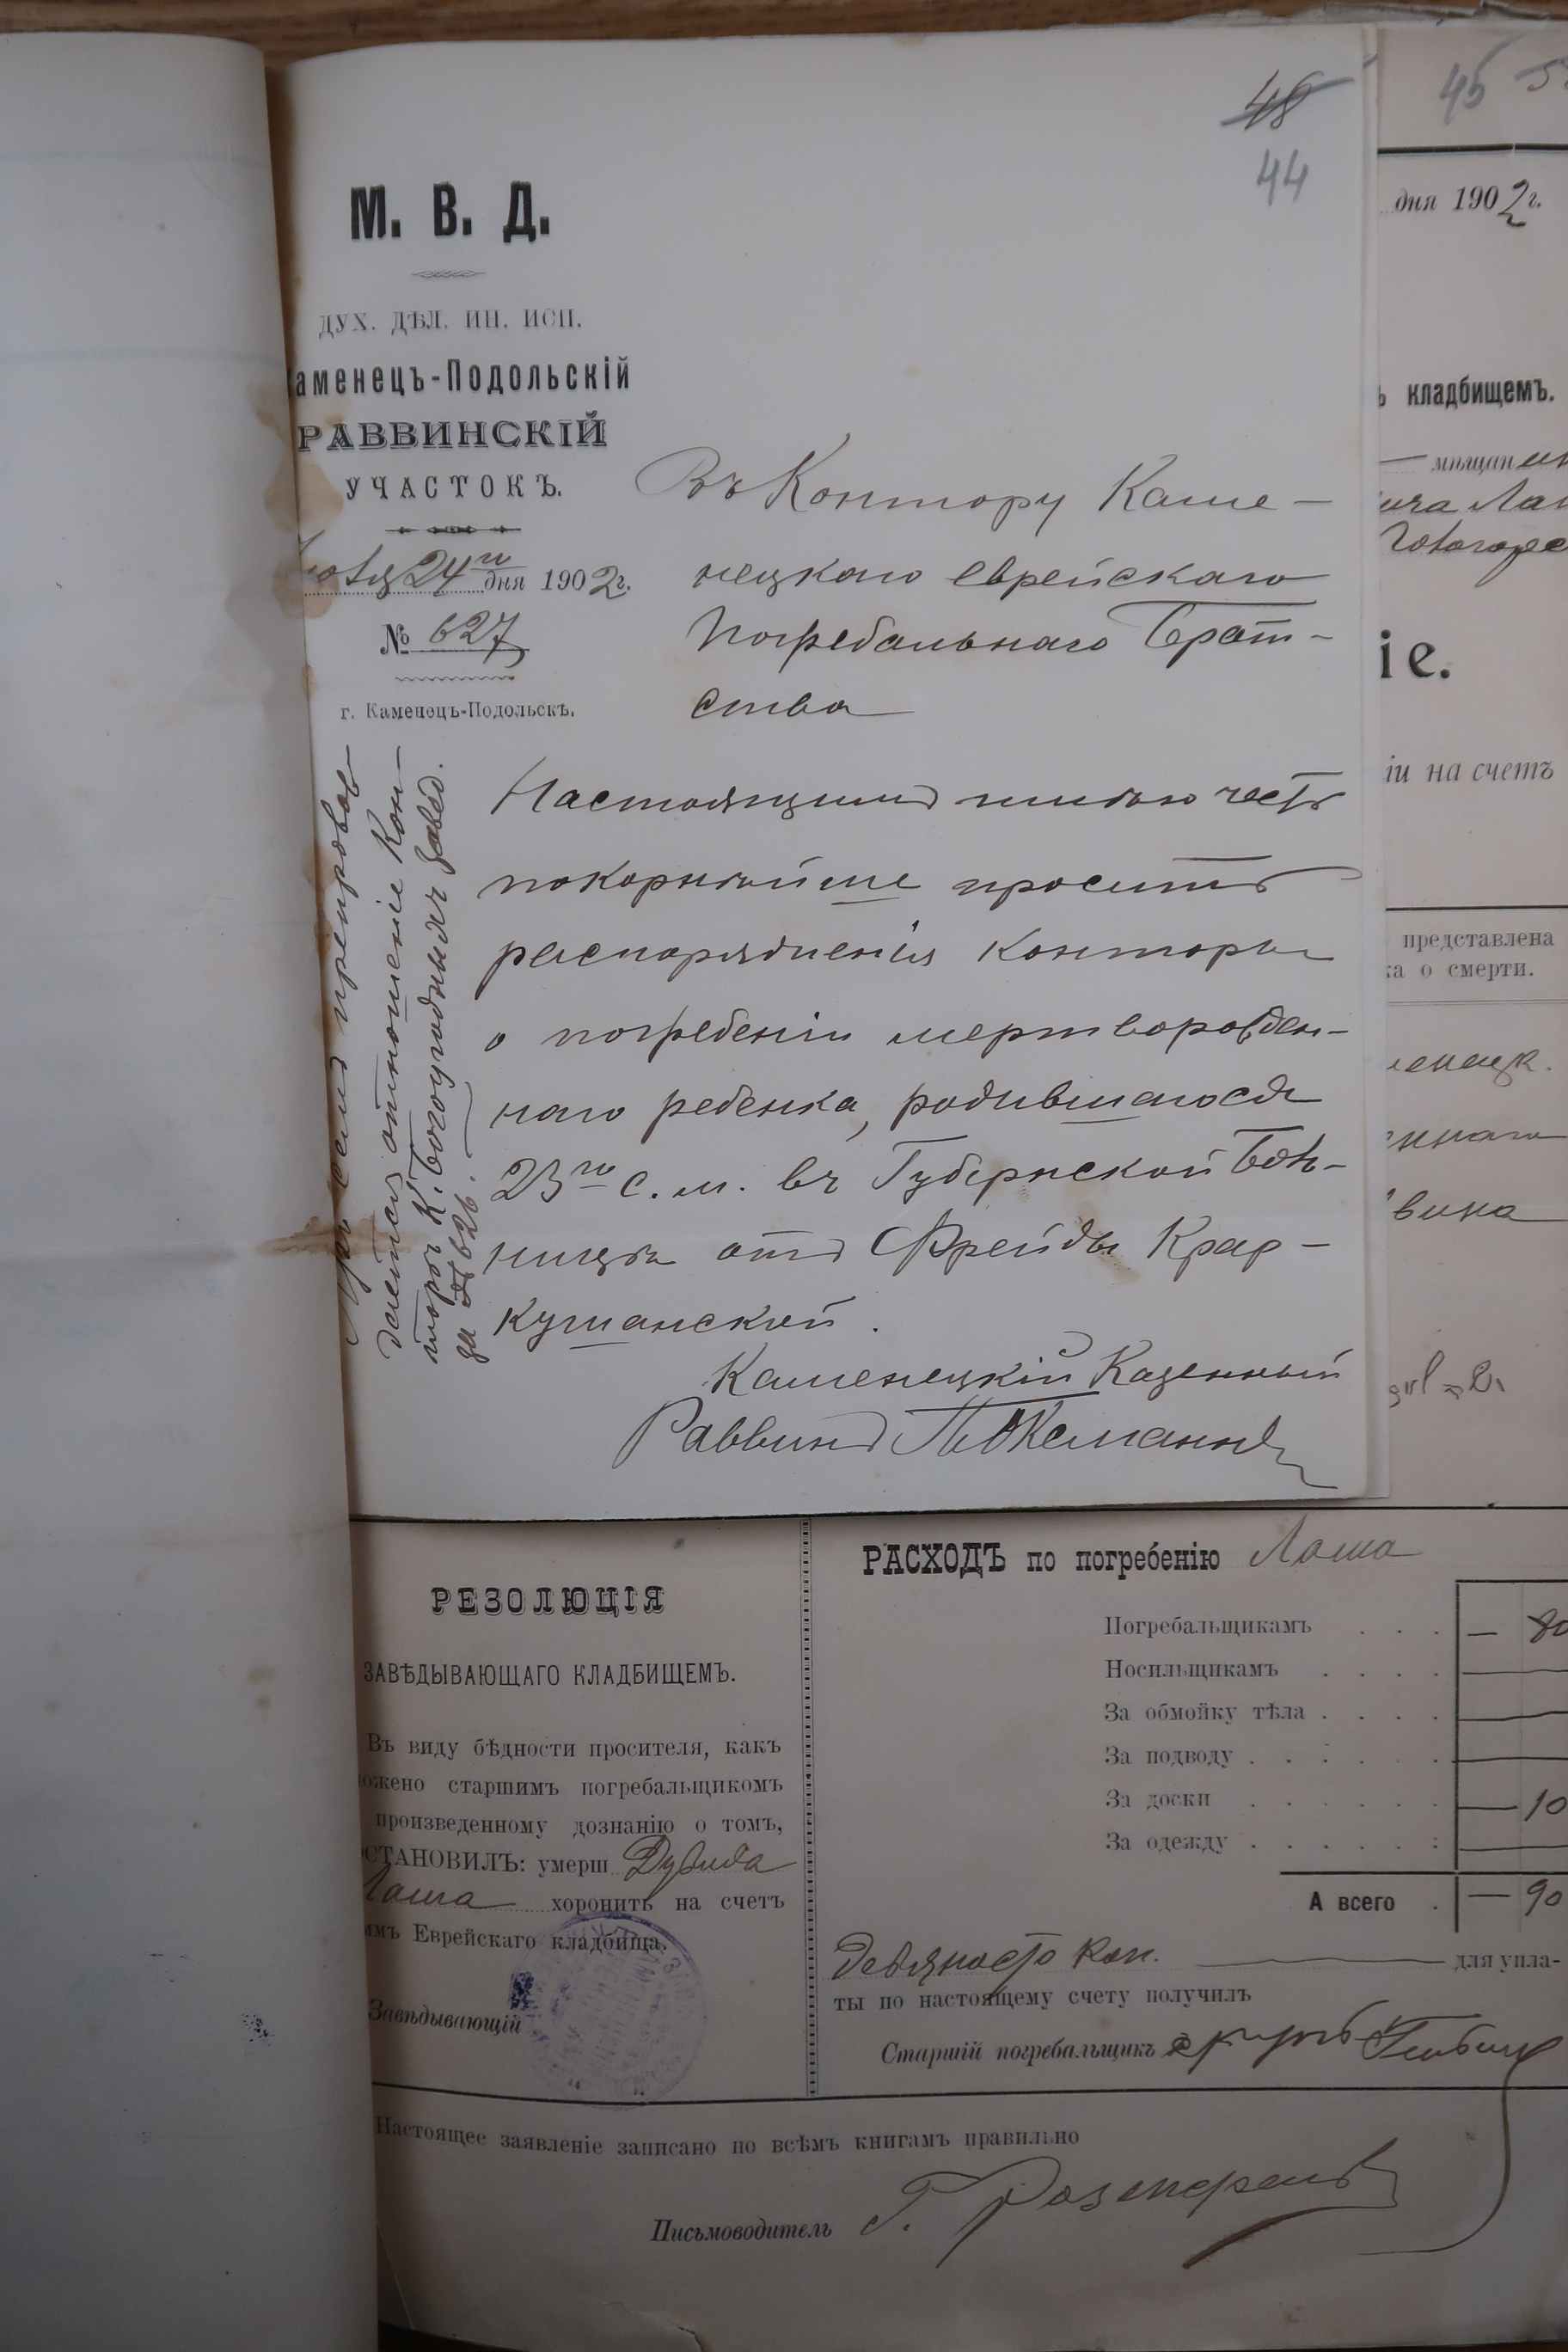 48
44
М. В. Д.
ДУХ. ДѢЛ. ИН. ИСП.
аменецъ-Подольскій
РАВВИНСКІЙ
УЧАСТОКЪ.
24го дня 1902 г.
№ 627
г. Каменецъ-Подольскъ.
Въ Контору Каме-
нецкаго еврейскаго
Погребальнаго Брат-
ства
Настоящимъ имѣю честь
покорнѣйше просить
распоряженія Конторы
о погребеніи мертворожден-
наго ребенка, родившагося
23го с. м. въ Губернской Боль-
ницѣ отъ Фрейды Крас-
кушанской.
Каменецкій Казенный
Раввинъ
При семъ препровож-
дается отношеніе Кон-
торы К. Богоугодныхъ Завед.
за № 626.
45
дня 1902 г.
ъ кладбищемъ.
мѣщан
іе.
іи на счетъ
представлена
ка о смерти.
РЕЗОЛЮЦІЯ
ЗАВѢДЫВАЮЩАГО КЛАДБИЩЕМЪ.
Въ виду бѣдности просителя, какъ
ожено старшимъ погребальщикомъ
произведенному дознанію о томъ,
ОСТАНОВИЛЪ: умерш Дувида
Лаша хоронить на счетъ
имъ Еврейскаго кладбища.
Завѣдывающій
РАСХОДЪ по погребенію Лаша
Погребальщикамъ . . . — 80
Носильщикамъ . . . . —
За обмойку тѣла . . . . —
За подводу . . . . . . —
За доски . . . . . . — 10
За одежду . . . . . : —
А всего . — 90
Девяносто коп. — для упла-
ты по настоящему счету получилъ
Старшій погребальщикъ
Настоящее заявленіе записано по всѣмъ книгамъ правильно
Письмоводитель Г.